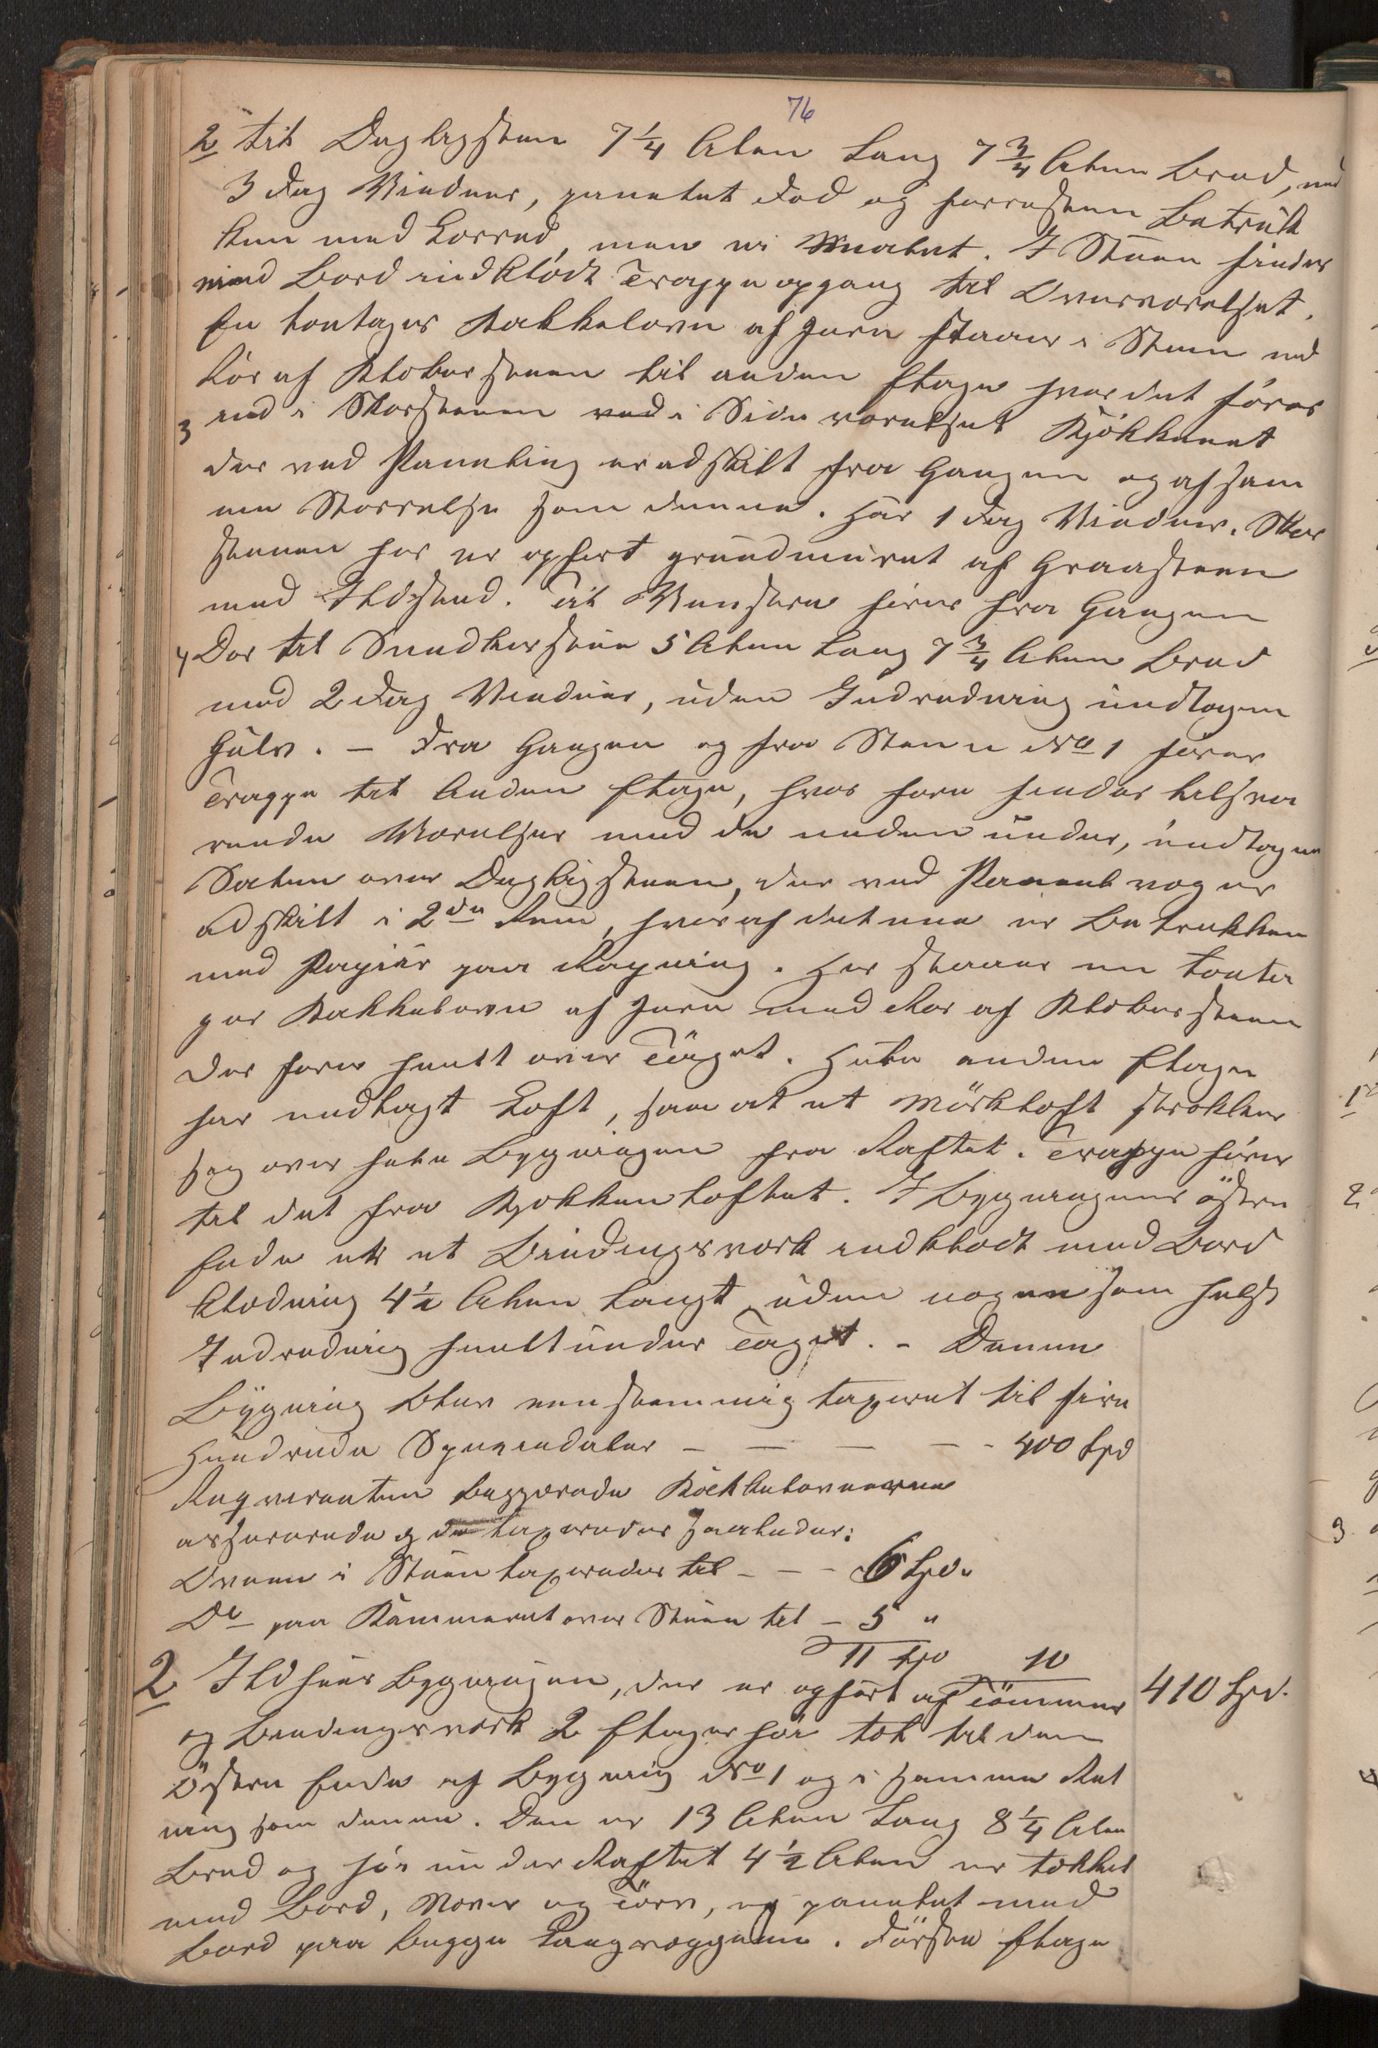 76
2 til Dagligstuen 7 1/4 Alen Lang 7 3/4 Alen Bred, med
3 Fag Vinduer, panelet Fod og forresten Betruk
ken med Lerred, men ei malet. I Stuen findes
med Bord indklædt Trappeopgang til Overværelset.
En toetages Kakkelovn af Jern staar i Stuen med
Rør af Klebersteen til anden Etage hvor det føres
3 ind i Skorstenen ved i Sideværelset Kjøkkenet
der ved Paneling er adskilt fra Gangen og af sam
me Størrelse som denne. Har 1 Fag Vinduer. Skor
stenen her er opført grundmuret af Graasteen
med Ildsted. Til Venstre fører fra Gangen
4 Dør til Snedkerstue 5 Alen Lang 7 3/4 Alen Bred
med 2 Fag Vinduer, uden Indredning undtagen
Gulv. – Fra Gangen og fra Stuen No 1 fører
Trappe til Anden Etage, hvor here findes tilsva
rende Værelser med de neden under, undtagen
Salen over Dagligstuen, der ved Panelvæg er
adskilt i 2de Rum, hvoraf det ene er Betrukken
med Papiir paa Rapning. Her staaer en toeta
ges Kakkelovn af Jern med Rør af Klebersteen
der fører heelt over Taget. Hele anden Etage
har nedlagt Loft, saa at et Mørkloft strækker
sig over hele Bygningen fra Raftet. Trappe fører
til det fra Kjøkkenloftet. I Bygningens østre
Ende er et Bindingsværk indklædt med Bord
klædning 4 1/2 Alen Langt uden nogensomhelst
Indredning heelt under Taget. – Denne
Bygning blev eenstemmig taxeret til fire
Hundrede Speciedaler – – – – 400 Spd
Reqvirenten begjærede Kakkelovnene
assurerede og de taxeredes saaledes:
Ovnen i Stuen taxeredes til – – – 6 Spd.
Do paa Kammeret over Stuen til – 5 "
11 Spd 10
2 Ildhuus Bygningen, der er opført af Tømmer 410 Spd.
og Bindingsværk 2 Etager høi tæt til den
Østre Ende af Bygning No 1 og i samme Ret
ning som denne. Den er 13 Alen Lang 8 1/4 Alen
Bred og høi under Raftet 4 1/2 Alen er tækket
med Bord, Næver og Törv, og panelet med
Bord paa begge Langvæggene. Første Etage